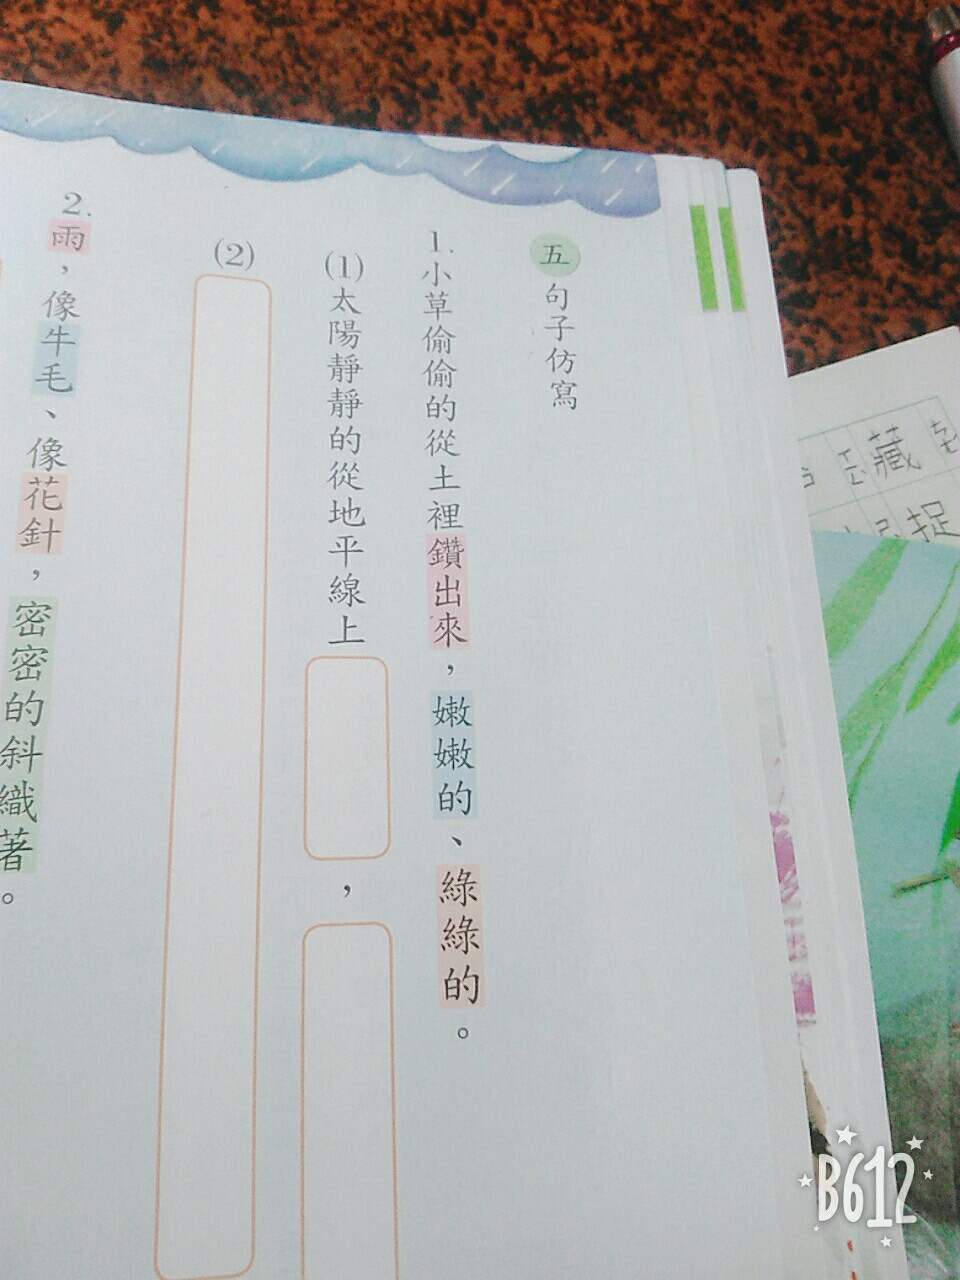 五 句子仿寫
1. 小草偷偷的從土裡鑽出來，嫩嫩的、綠綠的。
(1) 太陽靜靜的從地平線上
，
(2)
2. 雨，像牛毛、像花針，密密的斜織著。
藏
捉
B612